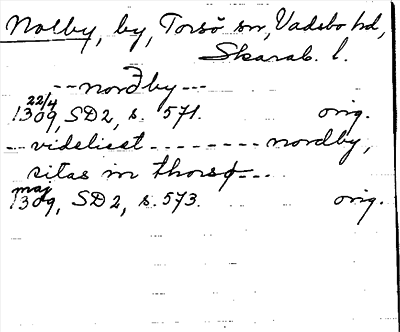 Nolby, by, Torsö sn, Vadsbo hd,
Skarab. l.
-- nordby ---
22/4
1309, SD 2, s. 571. orig.
-- videlicet -------- nordby,
sitas in thorsø ---
maj
1309, SD 2, s. 573. orig.